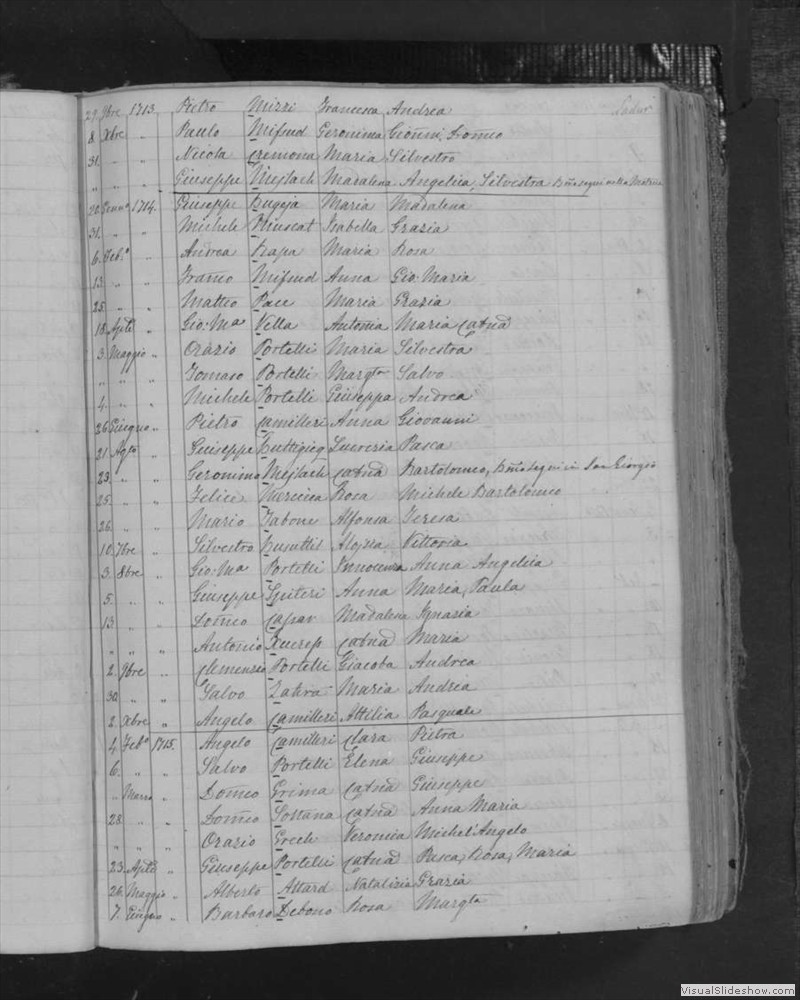 29. 9bre 1713. Pietro Mizzi Francesca Andrea Nadur
8. Xbre " Paulo Mifsud Geronima Gioñni, Doñico
31. " " Nicola Cremona Maria Silvestro
" " " Giuseppe Mejlach Madalena Angelica, Silvestra nella Matrice
20. Genno 1714. Giuseppe Bugeja Maria Madalena
31. " " Michele Vinscat Isabella Grazia
6. Febo " Andrea Rapa Maria Rosa
13. " " Franco Mifsud Anna Gio: Maria
25. " " Matteo Pace Maria Grazia
18. Aple " Gio: Ma Vella Antonia Maria Catnã
3. Maggio " Orazio Portelli Maria Silvestra
" " " Tomaso Portelli Margta Salvo
4. " " Michele Portelli Giuseppa Andrea
26. Giugno " Pietro Camilleri Anna Giovanni
21. Agto " Giuseppe Buttigieg Lucrezia Pasca
23. " " Geronimo Mejlach Catnã Bartolomeo, in San Giorgio
25. " " Felice Rosa Michele Bartolomeo
26. " " Mario Tabone Alfonsa Teresa
10. 7bre " Silvestro Busuttil Aloyza Vittoria
3. 8bre " Gio: Ma Portelli Innocenza Anna Angelica
5. " " Giuseppe Spiteri Anna Maria, Paula
13. " " Doñico Caspar Madalena Ignazia
" " " Antonio Xuereb Catnã Maria
2. 9bre " Clemenzio Portelli Giacoba Andrea
30. " " Salvo Zahra Maria Andria
2. Xbre " Angelo Camilleri Attilia Pasquale
4. Febo 1715. Angelo Camilleri Clara Pietra
6. " " Salvo Portelli Elena Giuseppe
" Marzo " Doñico Grima Catnã Giuseppe
28. " " Doñico Soltana Catnã Anna Maria
" " " Orazio Grech Veronica Michel'Angelo
23. Aple " Giuseppe Portelli Catnã Pasca, Rosa, Maria
26. Maggio " Alberto Attard Natalizia Grazia
7. Giugno " Barbaro Debono Rosa Margta
VisualSlideshow.com